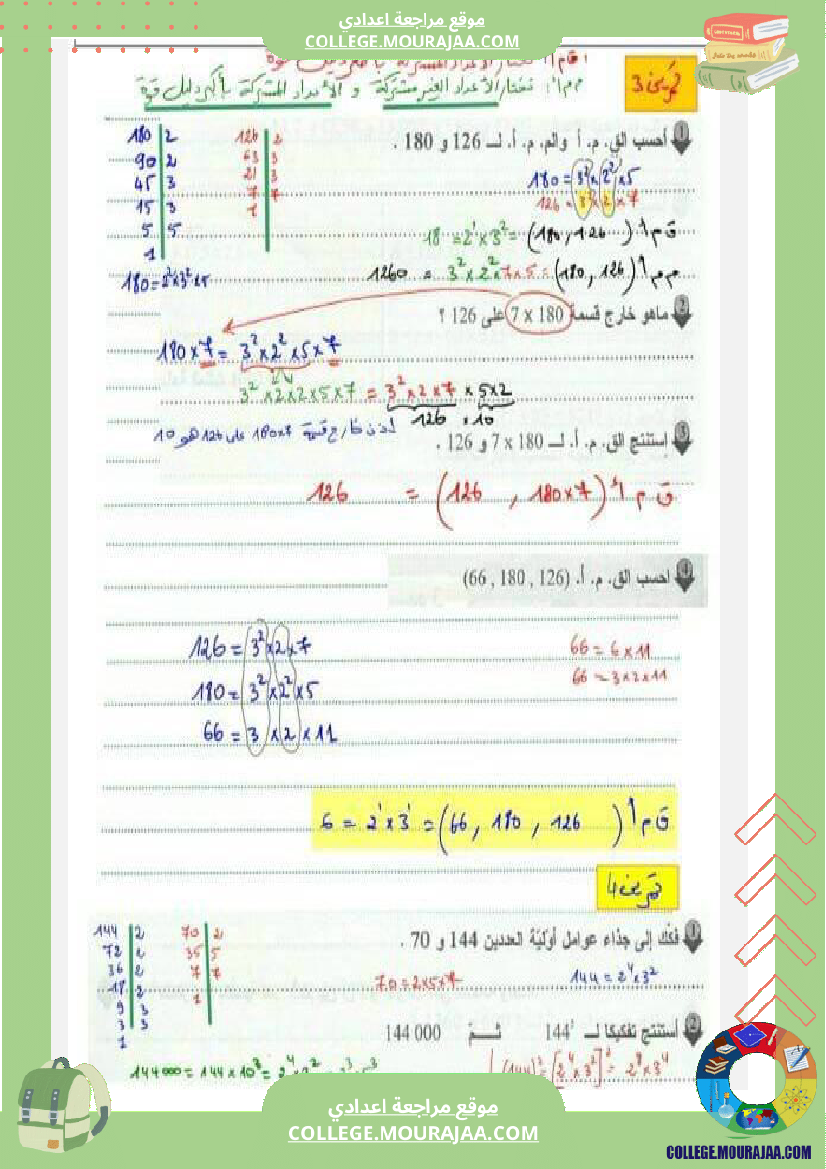 موقع مراجعة اعدادي
COLLEGE.MOURAJAA.COM
تمرين 3
م م أ: نختار الأعداد الغير مشتركة و الأعداد المشتركة بأكبر دليل قوة
1 أحسب الق. م. أ والم. م. أ. لـ 126 و 180 .
180 2
90 2
45 3
15 3
5 5
1
180 = 2² x 3² x 5
126 2
63 3
21 3
7 7
1
180 = 3² x 2² x 5
126 = 3² x 2 x 7
ق م أ (180, 126) = 2¹ x 3² = 18
م م أ (180, 126) = 3² x 2² x 7 x 5 = 1260
2 ماهو خارج قسمة 7 x 180 على 126 ؟
180 x 7 = 3² x 2² x 5 x 7
3² x 2 x 2 x 5 x 7 = 3² x 2 x 7 x 5 x 2
126 x 10
3 إستنتج الق. م. أ. لـ 7 x 180 و 126 .
ق م أ (126 , 180 x 7) = 126
4 احسب الق. م. أ. (66 , 180 , 126)
126 = 3² x 2 x 7
180 = 3² x 2² x 5
66 = 3 x 2 x 11
66 = 6 x 11
66 = 3 x 2 x 11
ق م أ (66 , 180 , 126) = 2¹ x 3¹ = 6
تمرين 4
1 فكّك إلى جذاء عوامل أوّليّة العددين 144 و 70 .
144 2
72 2
36 2
18 2
9 3
3 3
1
70 2
35 5
7 7
1
70 = 2 x 5 x 7
144 = 2⁴ x 3²
2 أستنتج تفكيكا لـ 144² ثـمّ 144 000
144000 = 144 x 10³ = 2⁴
(144)² = [2⁴ x 3²]² = 2⁸ x 3⁴
موقع مراجعة اعدادي
COLLEGE.MOURAJAA.COM
COLLEGE.MOURAJAA.COM